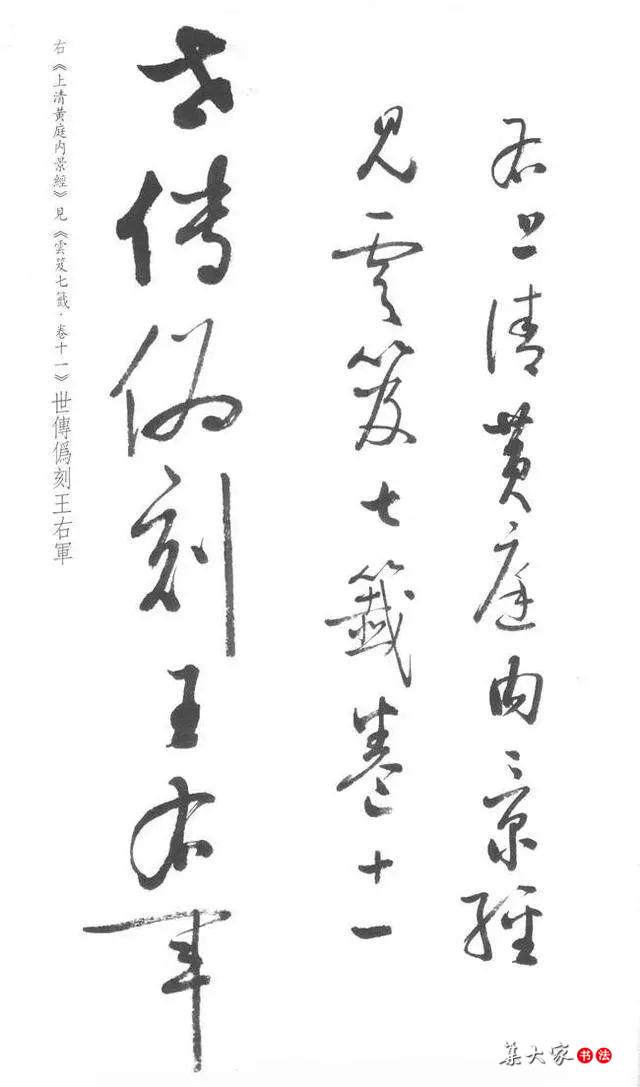 右上清黄庭内景經
見雲笈七籤卷十一
世傳偽刻
王右軍
右《上清黄庭内景經》見《雲笈七籤·卷十一》世傳僞刻王右軍
集大家书法